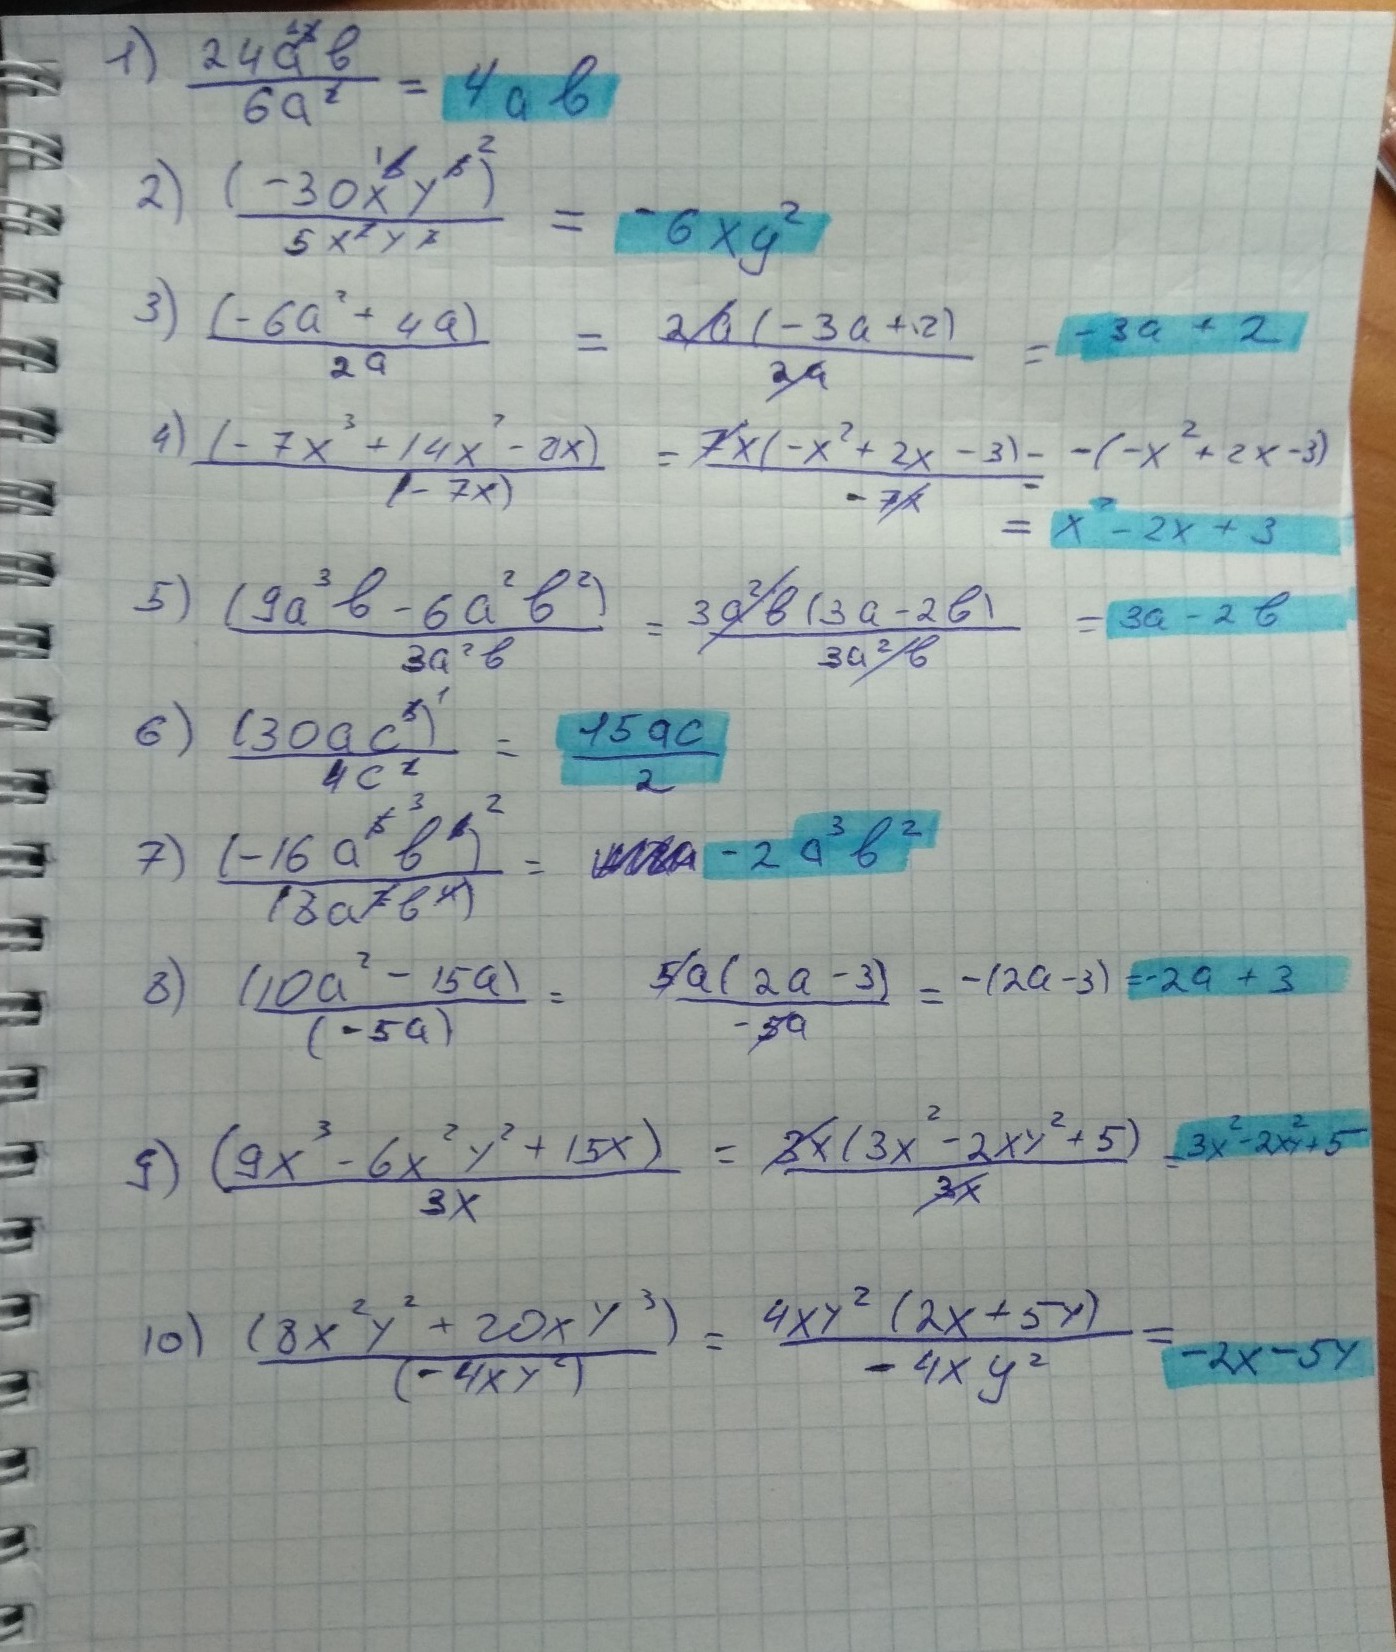 1) 24a³b / 6a² = 4ab
2) (-30x y)² / 5x²y² = -6xy²
3) (-6a² + 4a) / 2a = 2a(-3a+2) / 2a = -3a + 2
4) (-7x³ + 14x² - 21x) / (-7x) = 7x(-x² + 2x - 3) / -7x = -(-x² + 2x - 3)
= x² - 2x + 3
5) (9a³b - 6a²b²) / 3a²b = 3a²b(3a - 2b) / 3a²b = 3a - 2b
6) (30ac³)¹ / 4c² = 15ac / 2
7) (-16a⁵ ³ b)² / (8a²b⁴) = -2a³b²
8) (10a² - 15a) / (-5a) = 5a(2a - 3) / -5a = -(2a-3) = -2a + 3
9) (9x³ - 6x²y² + 15x) / 3x = 3x(3x² - 2xy² + 5) / 3x = 3x² - 2xy² + 5
10) (8x²y² + 20xy³) / (-4xy²) = 4xy²(2x + 5y) / -4xy² = -2x - 5y